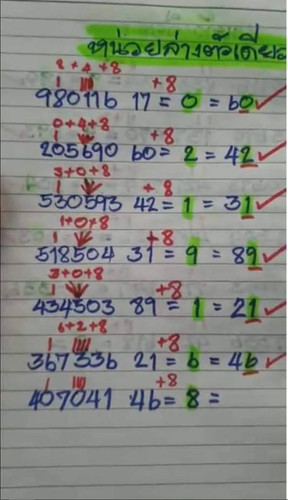 หน่วยล่างตัวเดียว
8+4+8
+8
980116 17 = 0 = 60
0+4+8
+8
205690 60 = 2 = 42
3+0+8
+8
530593 42 = 1 = 31
1+0+8
+8
518504 31 = 9 = 89
3+0+8
+8
434503 89 = 1 = 21
6+2+8
+8
367336 21 = 6 = 46
+8
407041 46 = 8 =